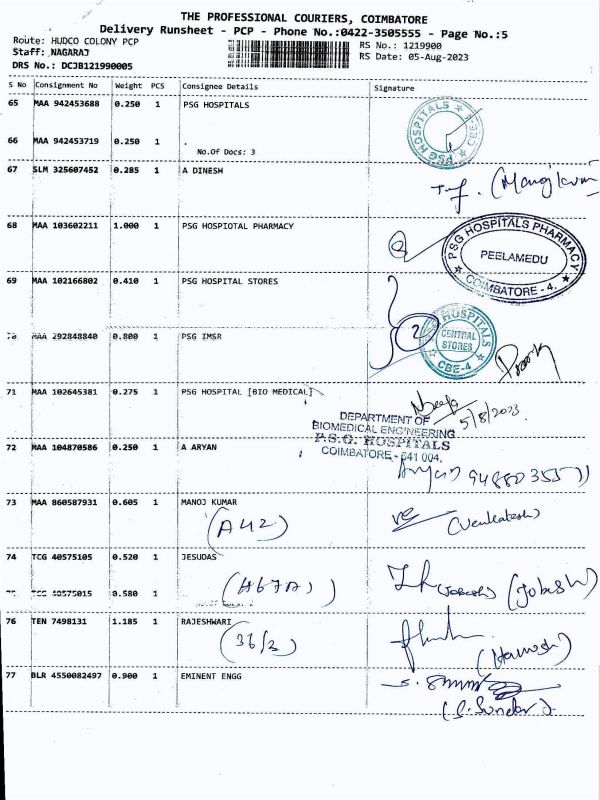 THE PROFESSIONAL COURIERS, COIMBATORE
Delivery Runsheet - PCP - Phone No.:0422-3505555 - Page No.:5
Route: HUDCO COLONY PCP
Staff: NAGARAJ
DRS No.: DCJB121990005
RS No.: 1219900
RS Date: 05-Aug-2023
S No Consignment No Weight PCS Consignee Details Signature
65 MAA 942453688 0.250 1 PSG HOSPITALS
PSG HOSPITALS
CBE-
66 MAA 942453719 0.250 1
No.Of Docs: 3
67 SLM 325607452 0.285 1 A DINESH
68 MAA 103602211 1.000 1 PSG HOSPIOTAL PHARMACY
PSG HOSPITALS PHARMACY
PEELAMEDU
COIMBATORE - 4.
69 MAA 102166802 0.410 1 PSG HOSPITAL STORES
2
HOSPITALS
CENTRAL
STORES
CBE-4
MAA 292848840 0.800 1 PSG IMSR
71 MAA 102645381 0.275 1 PSG HOSPITAL [BIO MEDICAL]
5/8/2023
DEPARTMENT OF
BIOMEDICAL ENGINEERING
P.S.G. HOSPITALS
COIMBATORE - 641 004.
72 MAA 104870586 0.250 1 A ARYAN
73 MAA 860587931 0.605 1 MANOJ KUMAR
(A42)
(Venkatesh)
74 TCG 40575105 0.520 1 JESUDAS
40575015 0.580 1
76 TEN 7498131 1.185 1 RAJESHWARI
(36/2)
77 BLR 4550082497 0.900 1 EMINENT ENGG
(S. Sundar)